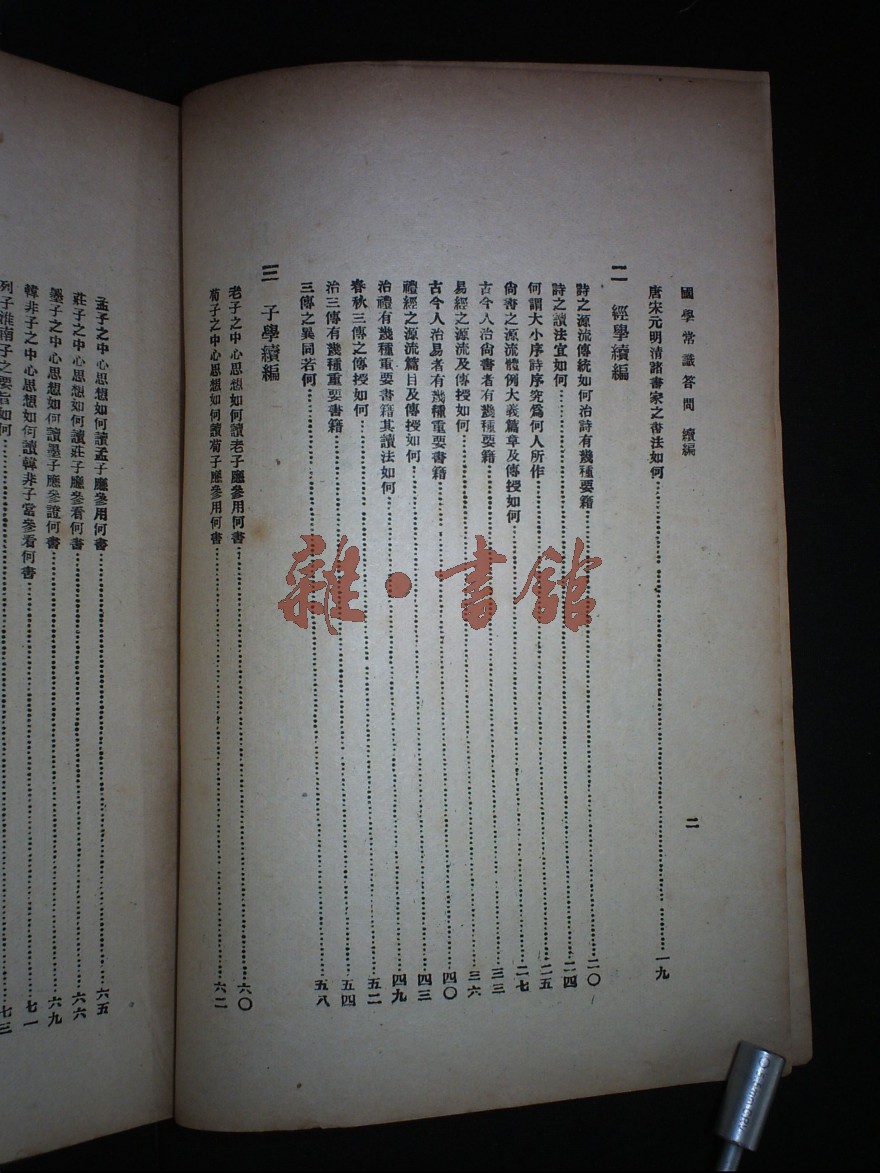 國學常識答問 續編
二
唐宋元明清諸書家之書法如何……一九
二 經學續編
詩之源流傳統如何治詩有幾種要籍……二〇
詩之讀法宜如何……二四
何謂大小序詩序究爲何人所作……二五
尙書之源流體例大義篇章及傳授如何……二七
古今人治尙書者有幾種要籍……三三
易經之源流及傳授如何……三六
古今人治易者有幾種重要書籍……四〇
禮經之源流篇目及傳授如何……四三
治禮有幾種重要書籍其讀法如何……四九
春秋三傳之傳授如何……五二
治三傳有幾種重要書籍……五四
三傳之異同若何……五八
三 子學續編
老子之中心思想如何讀老子應參用何書……六〇
荀子之中心思想如何讀荀子應參用何書……六二
孟子之中心思想如何讀孟子應參用何書……六五
莊子之中心思想如何讀莊子應參看何書……六六
墨子之中心思想如何讀墨子應參證何書……六九
韓非子之中心思想如何讀韓非子當參看何書……七一
列子淮南子之要旨如何……七三
雜·書館